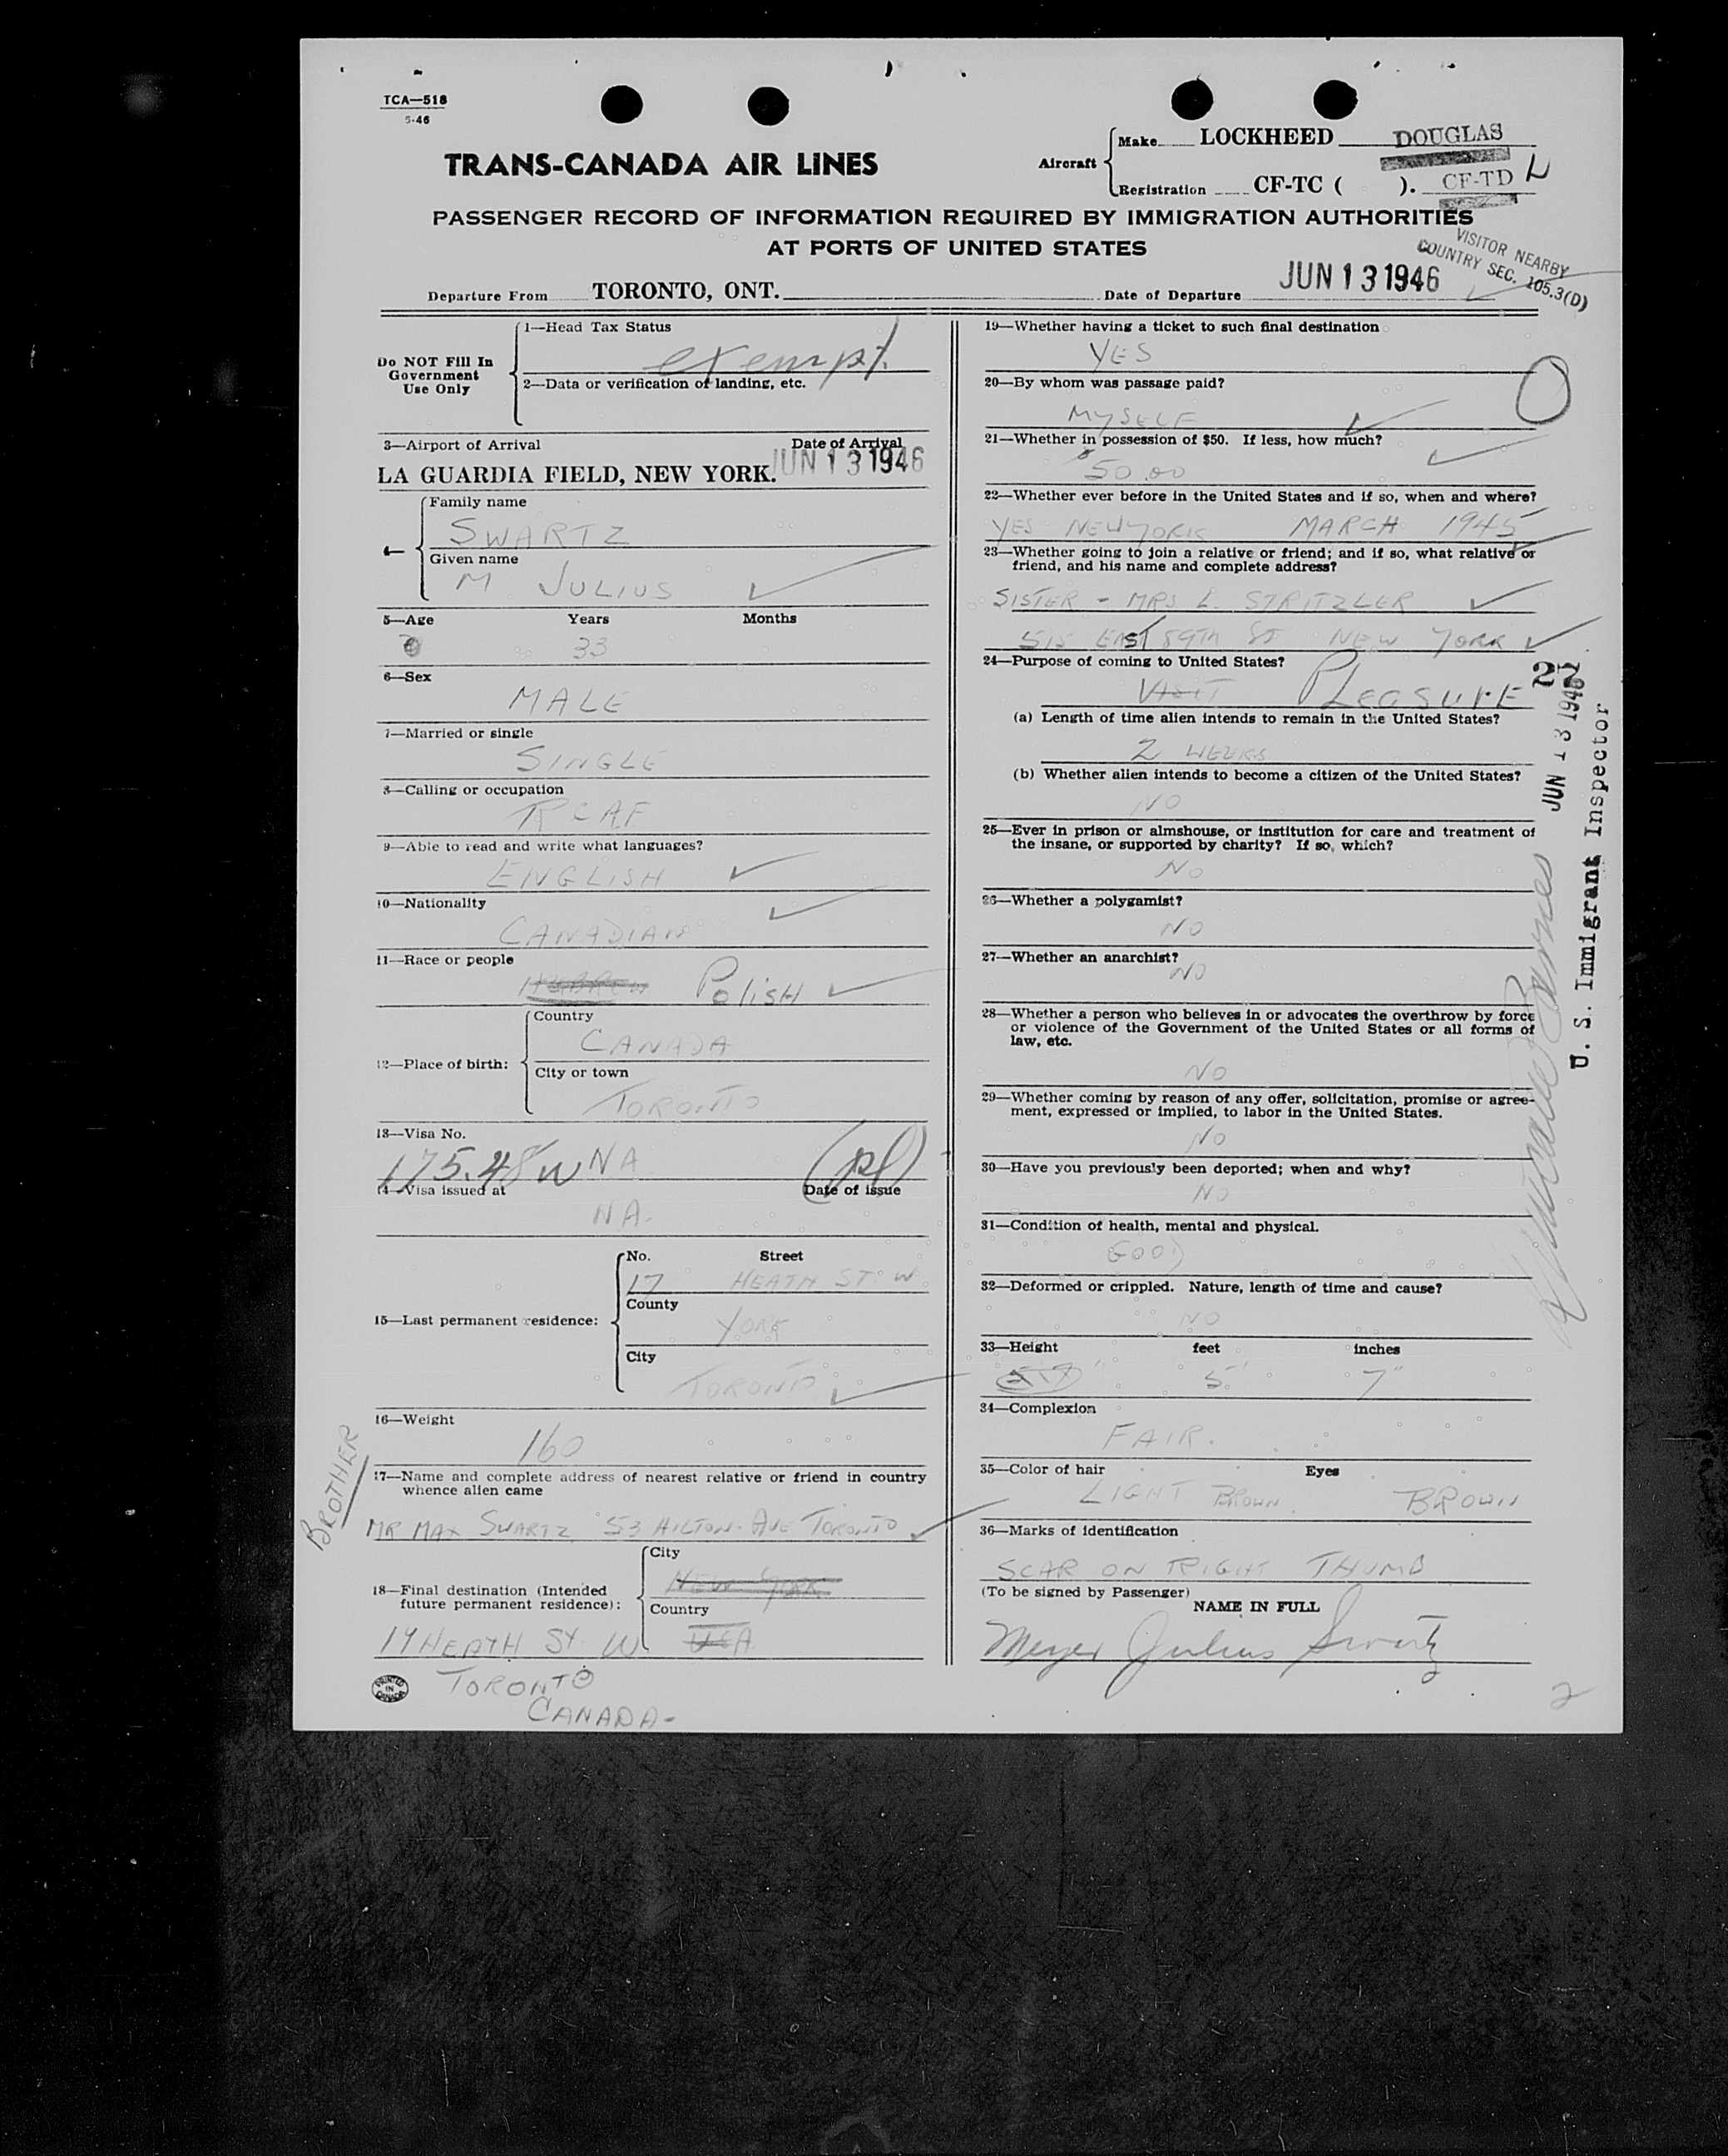 TCA—518
5-46
TRANS-CANADA AIR LINES
Aircraft
Make LOCKHEED DOUGLAS
Registration CF-TC ( ). CF-TD L
PASSENGER RECORD OF INFORMATION REQUIRED BY IMMIGRATION AUTHORITIES
AT PORTS OF UNITED STATES
VISITOR NEARBY
COUNTRY SEC. 105.3(D)
Departure From TORONTO, ONT. Date of Departure JUN 13 1946
Do NOT Fill In
Government
Use Only
1—Head Tax Status
exempt.
2—Data or verification of landing, etc.
3—Airport of Arrival Date of Arrival
LA GUARDIA FIELD, NEW YORK. JUN 13 1946
Family name
SWARTZ
4
Given name
M JULIUS
5—Age Years Months
33
6—Sex
MALE
7—Married or single
SINGLE
8—Calling or occupation
RCAF
9—Able to read and write what languages?
ENGLISH
10—Nationality
CANADIAN
11—Race or people
HEBREW Polish
12—Place of birth:
Country
CANADA
City or town
TORONTO
13—Visa No.
175.48 W NA (pl)
14—Visa issued at Date of issue
NA.
15—Last permanent residence:
No. Street
17 HEATH ST. W.
County
YORK
City
TORONTO
16—Weight
160
BROTHER
17—Name and complete address of nearest relative or friend in country
whence alien came
MR MAX SWARTZ 53 HILTON AVE TORONTO
18—Final destination (Intended
future permanent residence):
City
NEW YORK
Country
USA
17 HEATH ST. W
TORONTO
CANADA-
PRINTED
IN
CANADA
19—Whether having a ticket to such final destination
YES
20—By whom was passage paid?
MYSELF
21—Whether in possession of $50. If less, how much?
$50.00
22—Whether ever before in the United States and if so, when and where?
YES NEW YORK MARCH 1945
23—Whether going to join a relative or friend; and if so, what relative or
friend, and his name and complete address?
SISTER - MRS L. STRITZLER
515 EAST 89TH ST NEW YORK
24—Purpose of coming to United States?
VISIT PLEASURE
(a) Length of time alien intends to remain in the United States?
2 WEEKS
(b) Whether alien intends to become a citizen of the United States?
NO
25—Ever in prison or almshouse, or institution for care and treatment of
the insane, or supported by charity? If so, which?
NO
26—Whether a polygamist?
NO
27—Whether an anarchist?
NO
28—Whether a person who believes in or advocates the overthrow by force
or violence of the Government of the United States or all forms of
law, etc.
NO
29—Whether coming by reason of any offer, solicitation, promise or agree-
ment, expressed or implied, to labor in the United States.
NO
30—Have you previously been deported; when and why?
NO
31—Condition of health, mental and physical.
GOOD
32—Deformed or crippled. Nature, length of time and cause?
NO
33—Height feet inches
5' 7"
34—Complexion
FAIR.
35—Color of hair Eyes
LIGHT BROWN. BROWN
36—Marks of identification
SCAR ON RIGHT THUMB
(To be signed by Passenger)
NAME IN FULL
Meyer Julius Swartz
2
22
JUN 13 1946
U. S. Immigrant Inspector